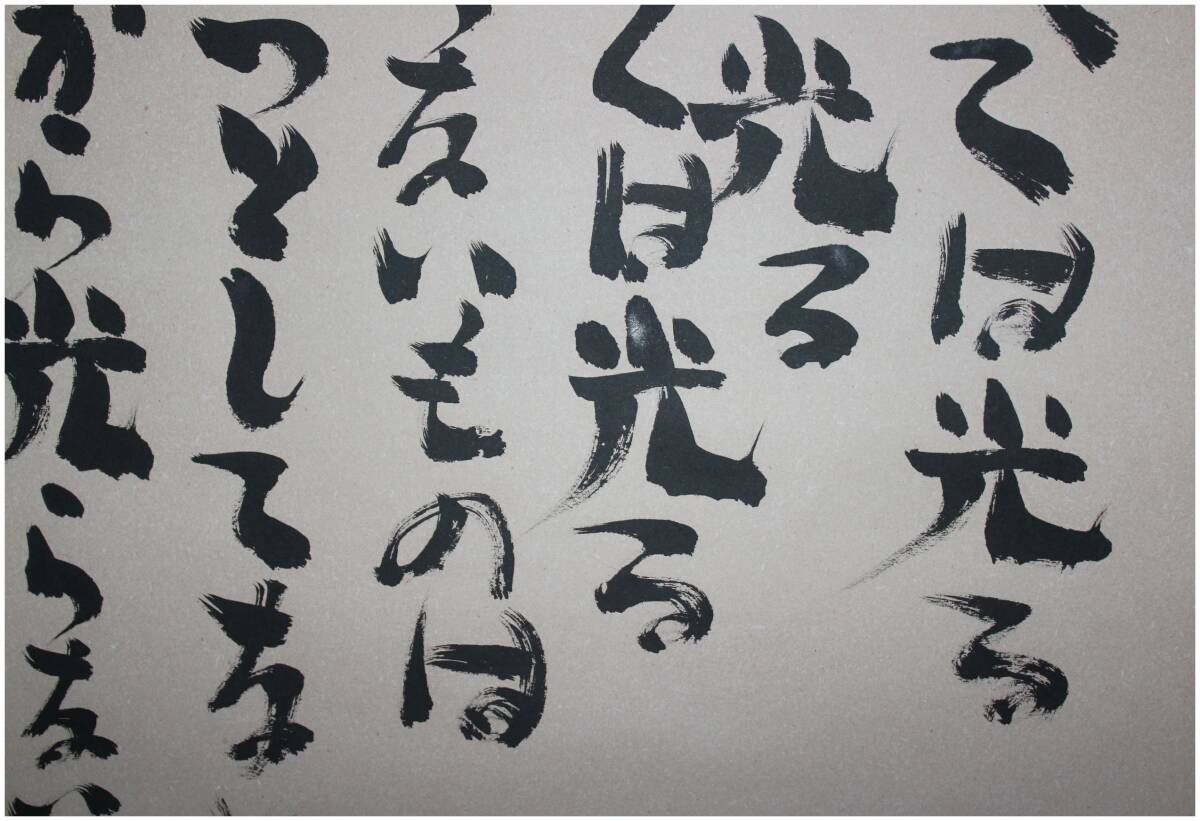 ては光る
光る
くは光る
ないものは
つとしてな
から光らない